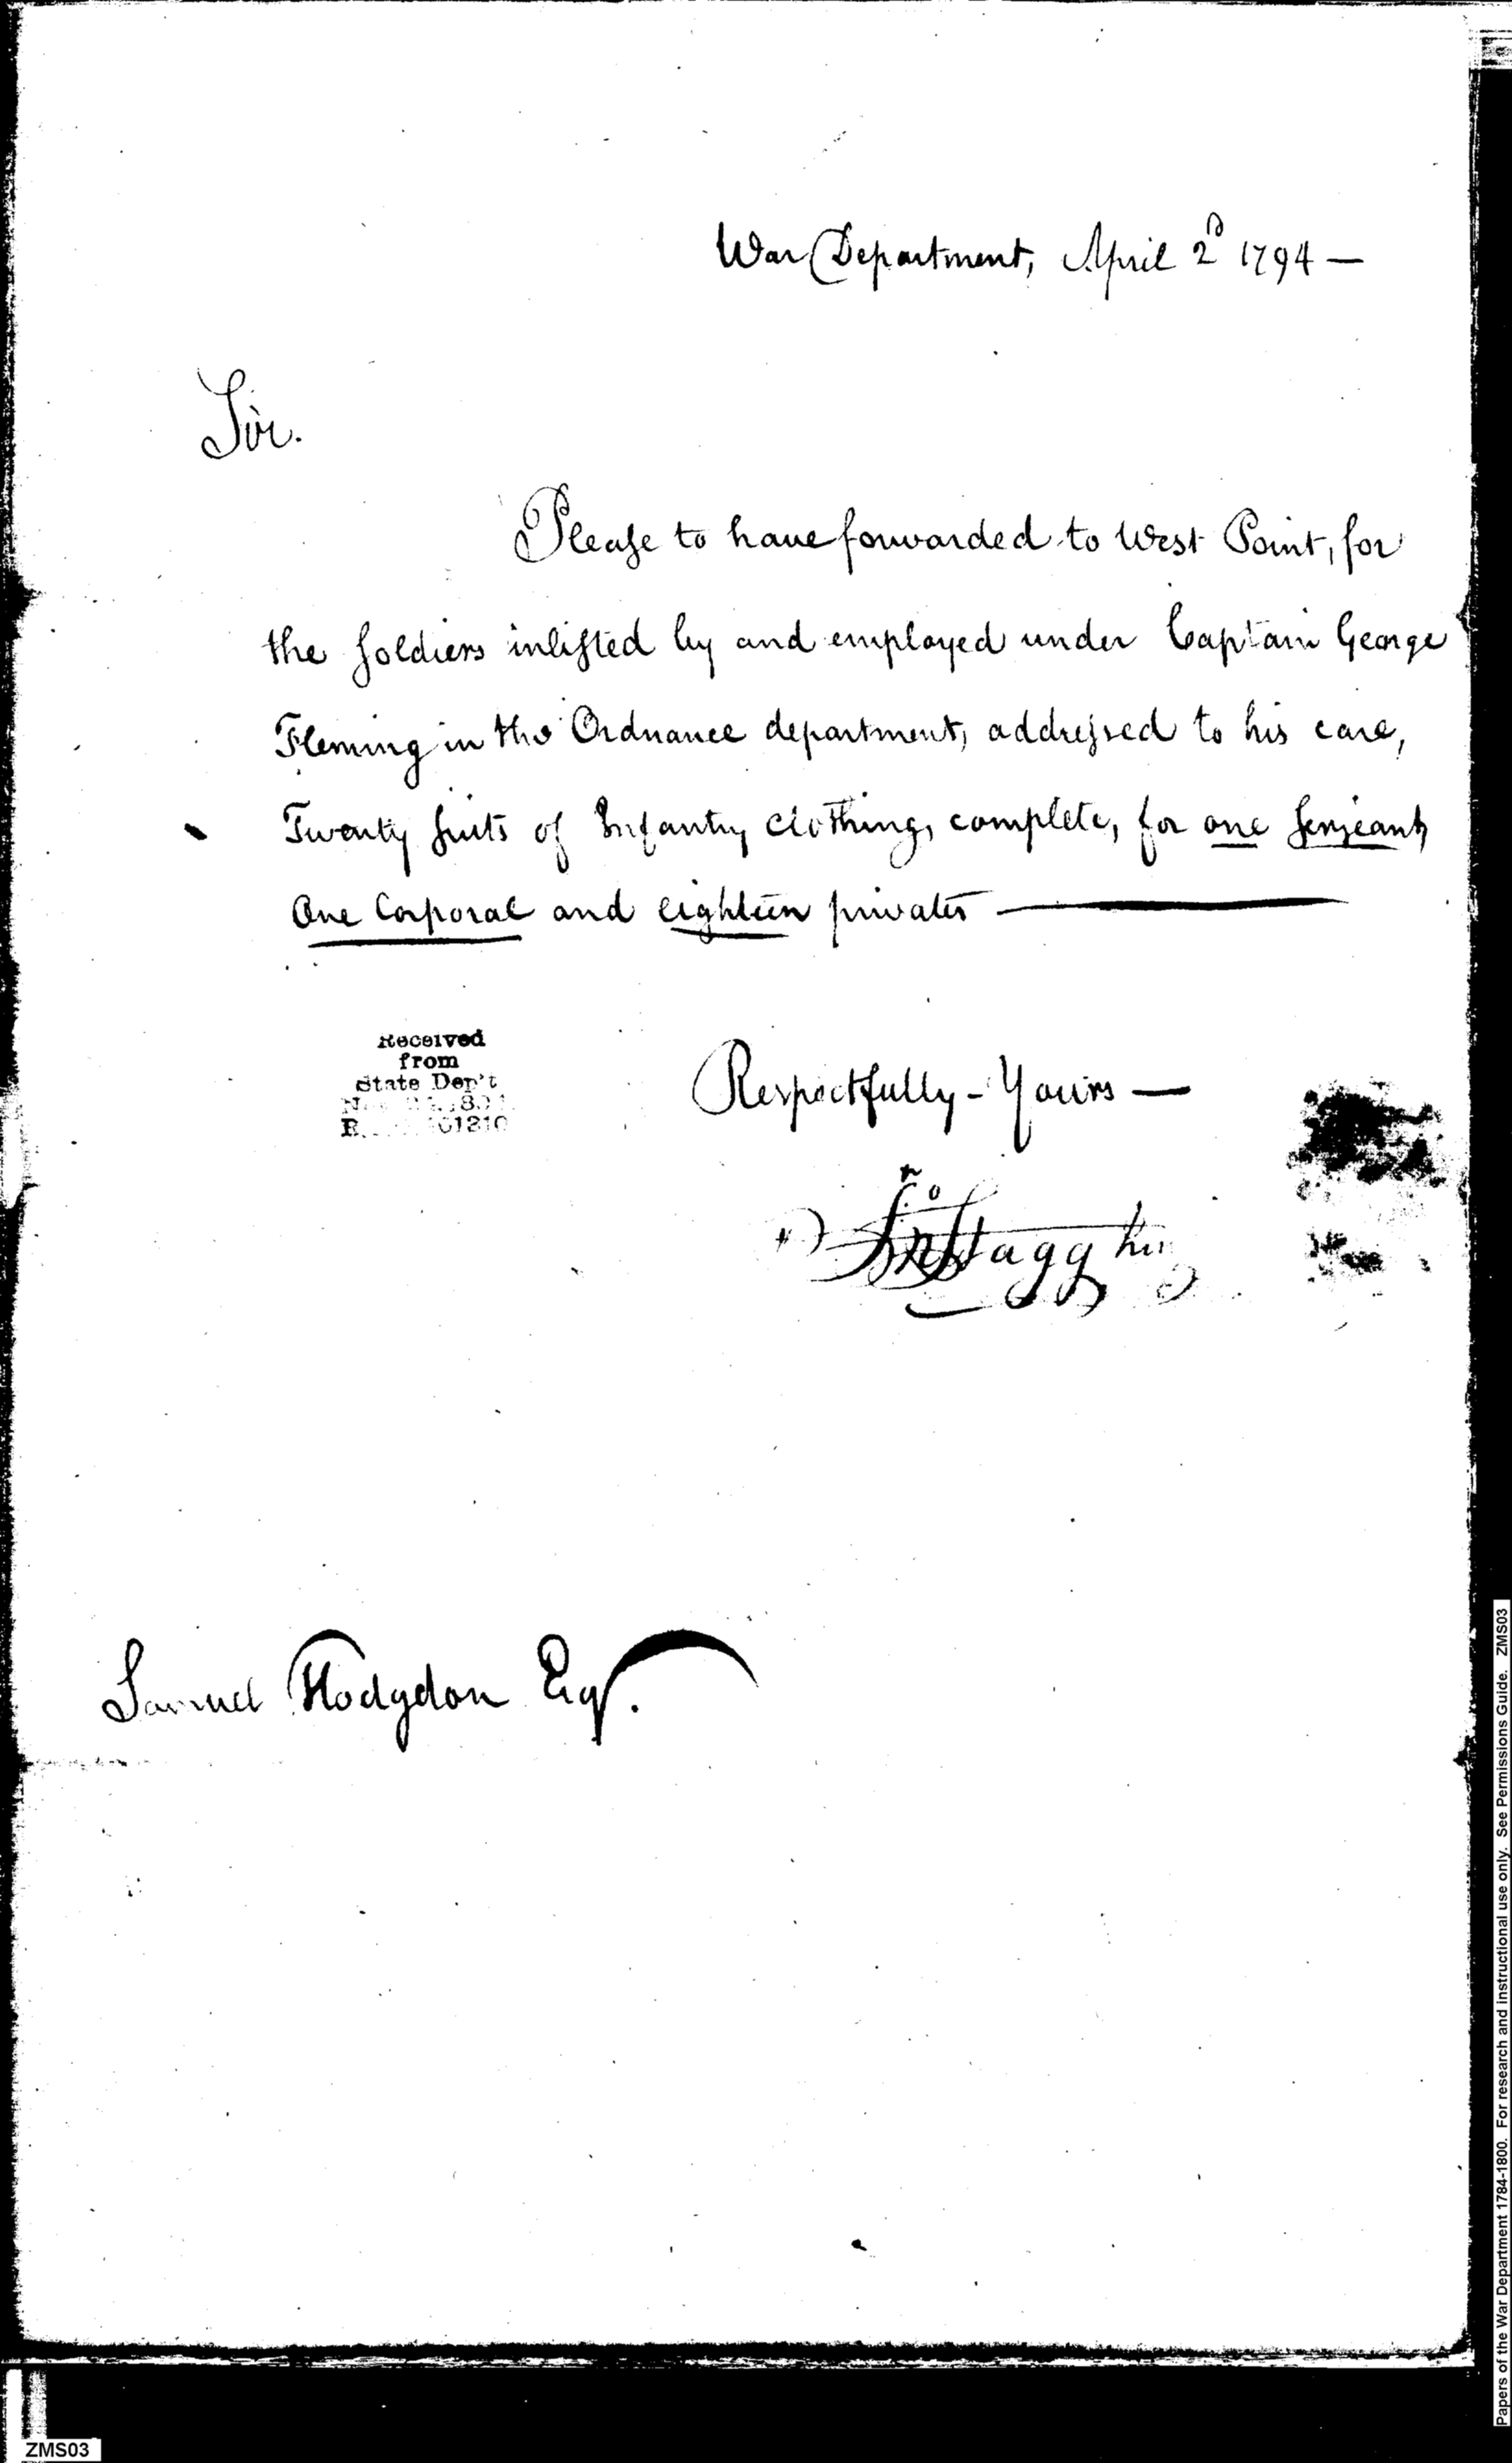 War Department, April 2d 1794 —
Sir.
Please to have forwarded to West Point, for
the soldiers inlisted by and employed under Captain George
Fleming in the Ordnance department, addressed to his care,
Twenty suits of Infantry clothing, complete, for one serjeant,
One Corporal and eighteen privates —
Received
from
State Dep't
Respectfully - Yours —
Jno Stagg
Samuel Hodgdon Esqr.
Papers of the War Department 1784-1800. For research and instructional use only. See Permissions Guide. ZMS03
ZMS03